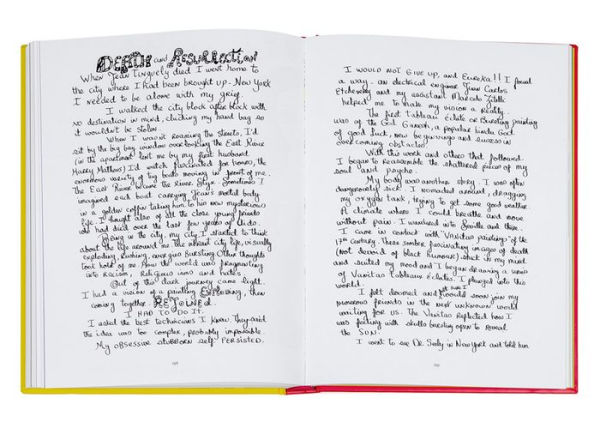 DEATH and RESURRECTION
When Jean Tinguely died I went home to
the city where I had been brought up. New York
I needed to be alone with my grief.
I walked the city block after block with
no destination in mind, clutching my hand bag so
it wouldn't be stolen
When I wasn't roaming the streets, I'd
sit by the big bay window overlooking the East River
(in the apartment lent me by my first husband
Harry Mathews) I'd watch fascinated for hours, the
enormous variety of tug boats moving in front of me.
The East River became the River Styx. Sometimes I
imagined each boat carrying Jean's mortal body
in a golden coffin taking him to his new mysterious
life. I thought also of all the close young friends
who had died over the last few years of Aids.
Being in the city, my city I started to think
about the life around me. The vibrant city life, visually
exploding, Rushing, overflowing Bursting. Other thoughts
took hold of me, how the world was fragmenting
into racism, religious wars and hates.
Out of this dark journey came light.
I had a vision of a painting EXPLODING, then
coming together. REJOINED
I HAD TO DO IT.
I asked the best technicians I knew. They said
the idea was too complex, probably impossible
My obsessive stubborn self PERSISTED.
I WOULD NOT GIVE UP, and EUREKA!! I found
a way. an electrical engineer Juan Carlos
and my assistant
helped me to make my vision a Reality.
The first Tableau Eclaté or Bursting painting
was of the God Ganesh, a popular hindu God
of good luck, new beginnings and success in
overcoming obstacles
With this work and others that followed
I began to reassemble the shattered pieces of my
soul and psyche.
My body was another story. I was often
dangerously sick. I wandered around, dragging
my oxygen tank, trying to get some good weather
A climate where I could breathe and move
without pain. I wandered into Seville and there
I came in contact with "Vanitas paintings" of the
17th century. These sombre fascinating images of death
(not devoid of black humour) stuck in my mind
and suited my mood and I began drawing a series
of Vanitas Tableaux Eclatés. I plunged into this
world.
I felt doomed and would soon join my
numerous friends in the next unknown world
waiting for us. The Vanitas reflected how I
was feeling with skulls bursting open to Reveal
the SUN.
I went to see Dr. in New York and told him